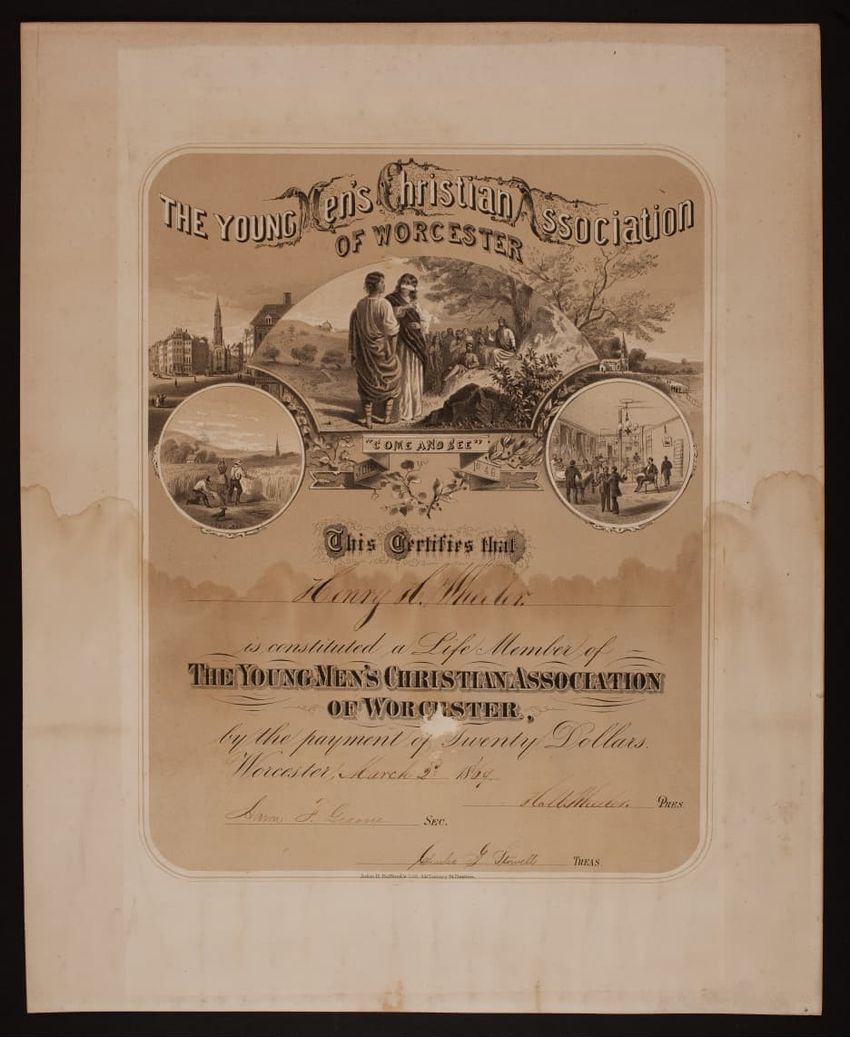 THE YOUNG Men's Christian Association
OF WORCESTER
"COME AND SEE"
This Certifies that
Henry H. Wheeler.
is constituted a Life Member of
THE YOUNG MEN'S CHRISTIAN ASSOCIATION
OF WORCESTER,
by the payment of Twenty Dollars.
Worcester, March 2ᵈ 1869
Wheeler. PRES.
F. SEC.
G. Stowell TREAS.